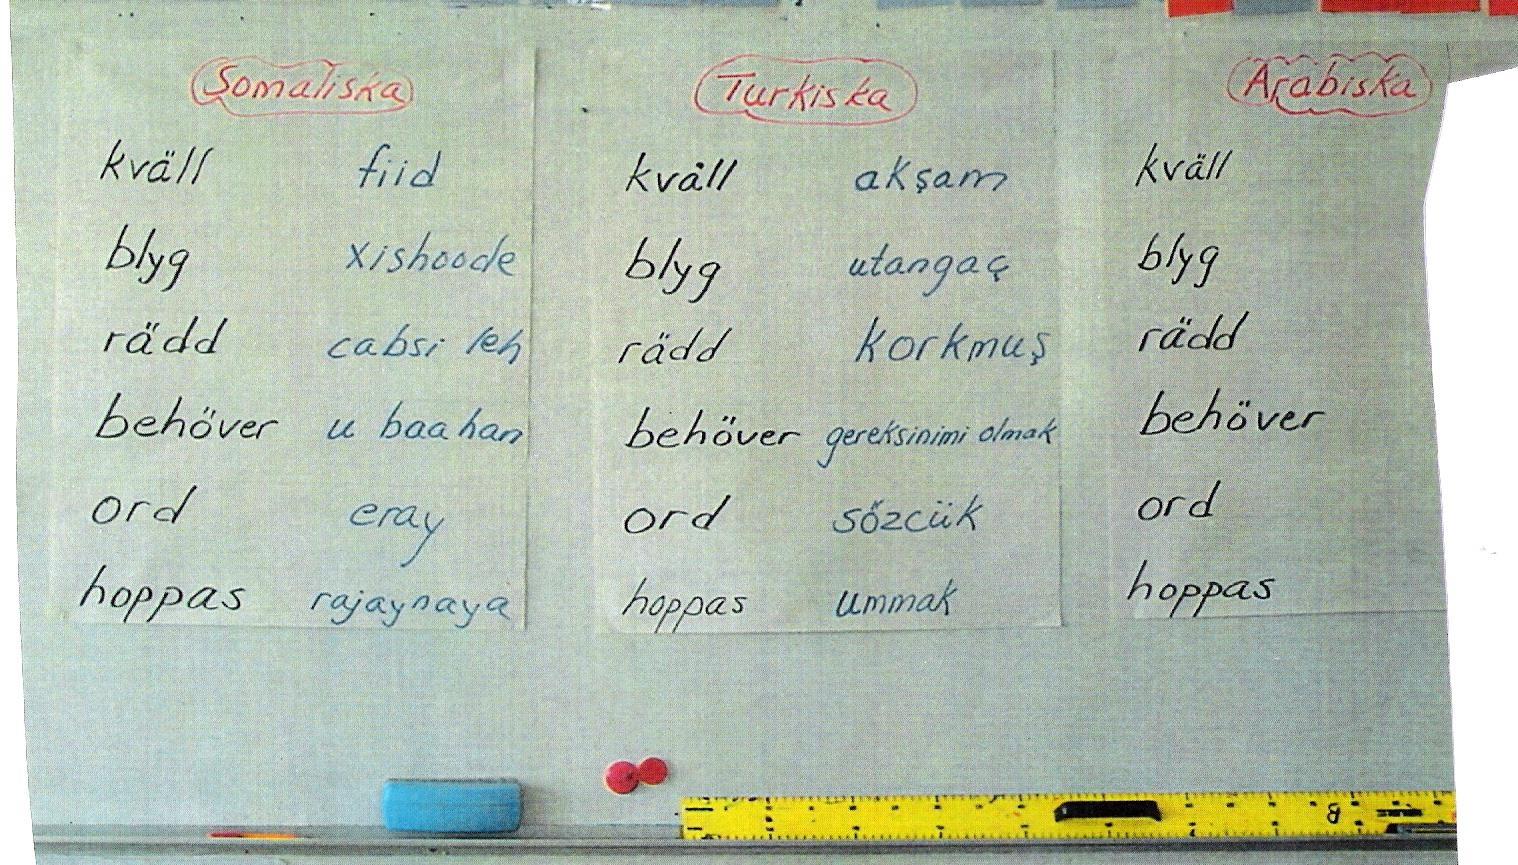 Somaliska
kväll fiid
blyg xishoode
rädd cabsi leh
behöver u baahan
ord eray
hoppas rajaynaya
Turkiska
kväll akşam
blyg utangaç
rädd korkmuş
behöver gereksinimi olmak
ord sözcük
hoppas ummak
Arabiska
kväll
blyg
rädd
behöver
ord
hoppas